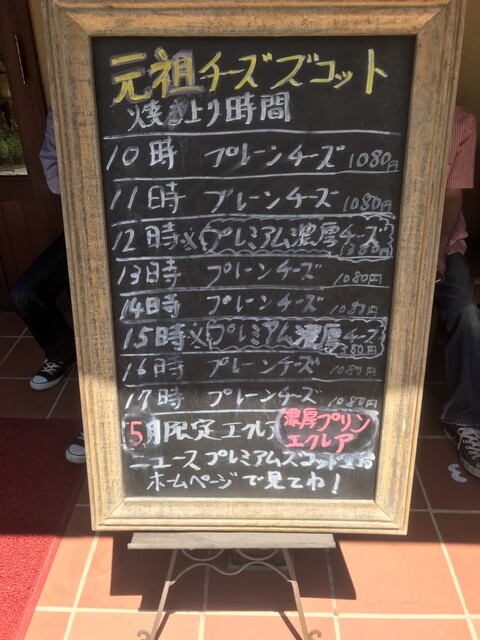 元祖チーズズコット
焼き上り時間
10時 プレーンチーズ 1080円
11時 プレーンチーズ 1080円
12時 プレミアム濃厚チーズ 1380円
13時 プレーンチーズ 1080円
14時 プレーンチーズ 1080円
15時 プレミアム濃厚チーズ 1380円
16時 プレーンチーズ 1080円
17時 プレーンチーズ 1080円
5月限定エクレア 濃厚プリンエクレア
ニュースプレミアムズコット
ホームページで見てね!